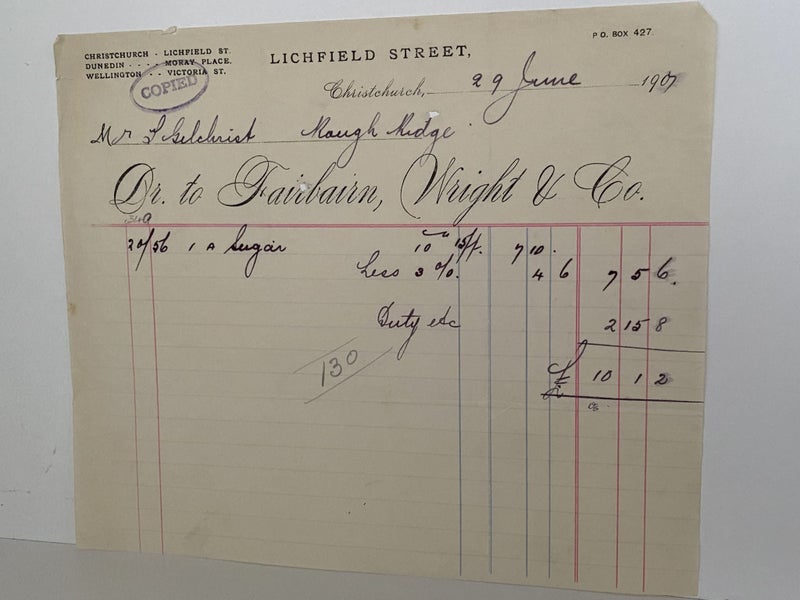 CHRISTCHURCH - LICHFIELD ST.
DUNEDIN - - - - MORAY PLACE.
WELLINGTON - - VICTORIA ST.
COPIED
LICHFIELD STREET,
P.O. BOX 427.
Christchurch, 29 June 1907
Mr Gilchrist Rough Ridge
Dr. to Fairbairn, Wright & Co.
20/56 1 A Sugar 10 15/ 7 10
Less 3 %. 4 6 7 5 6.
Duty etc 2 15 8
130
£ 10 1 2